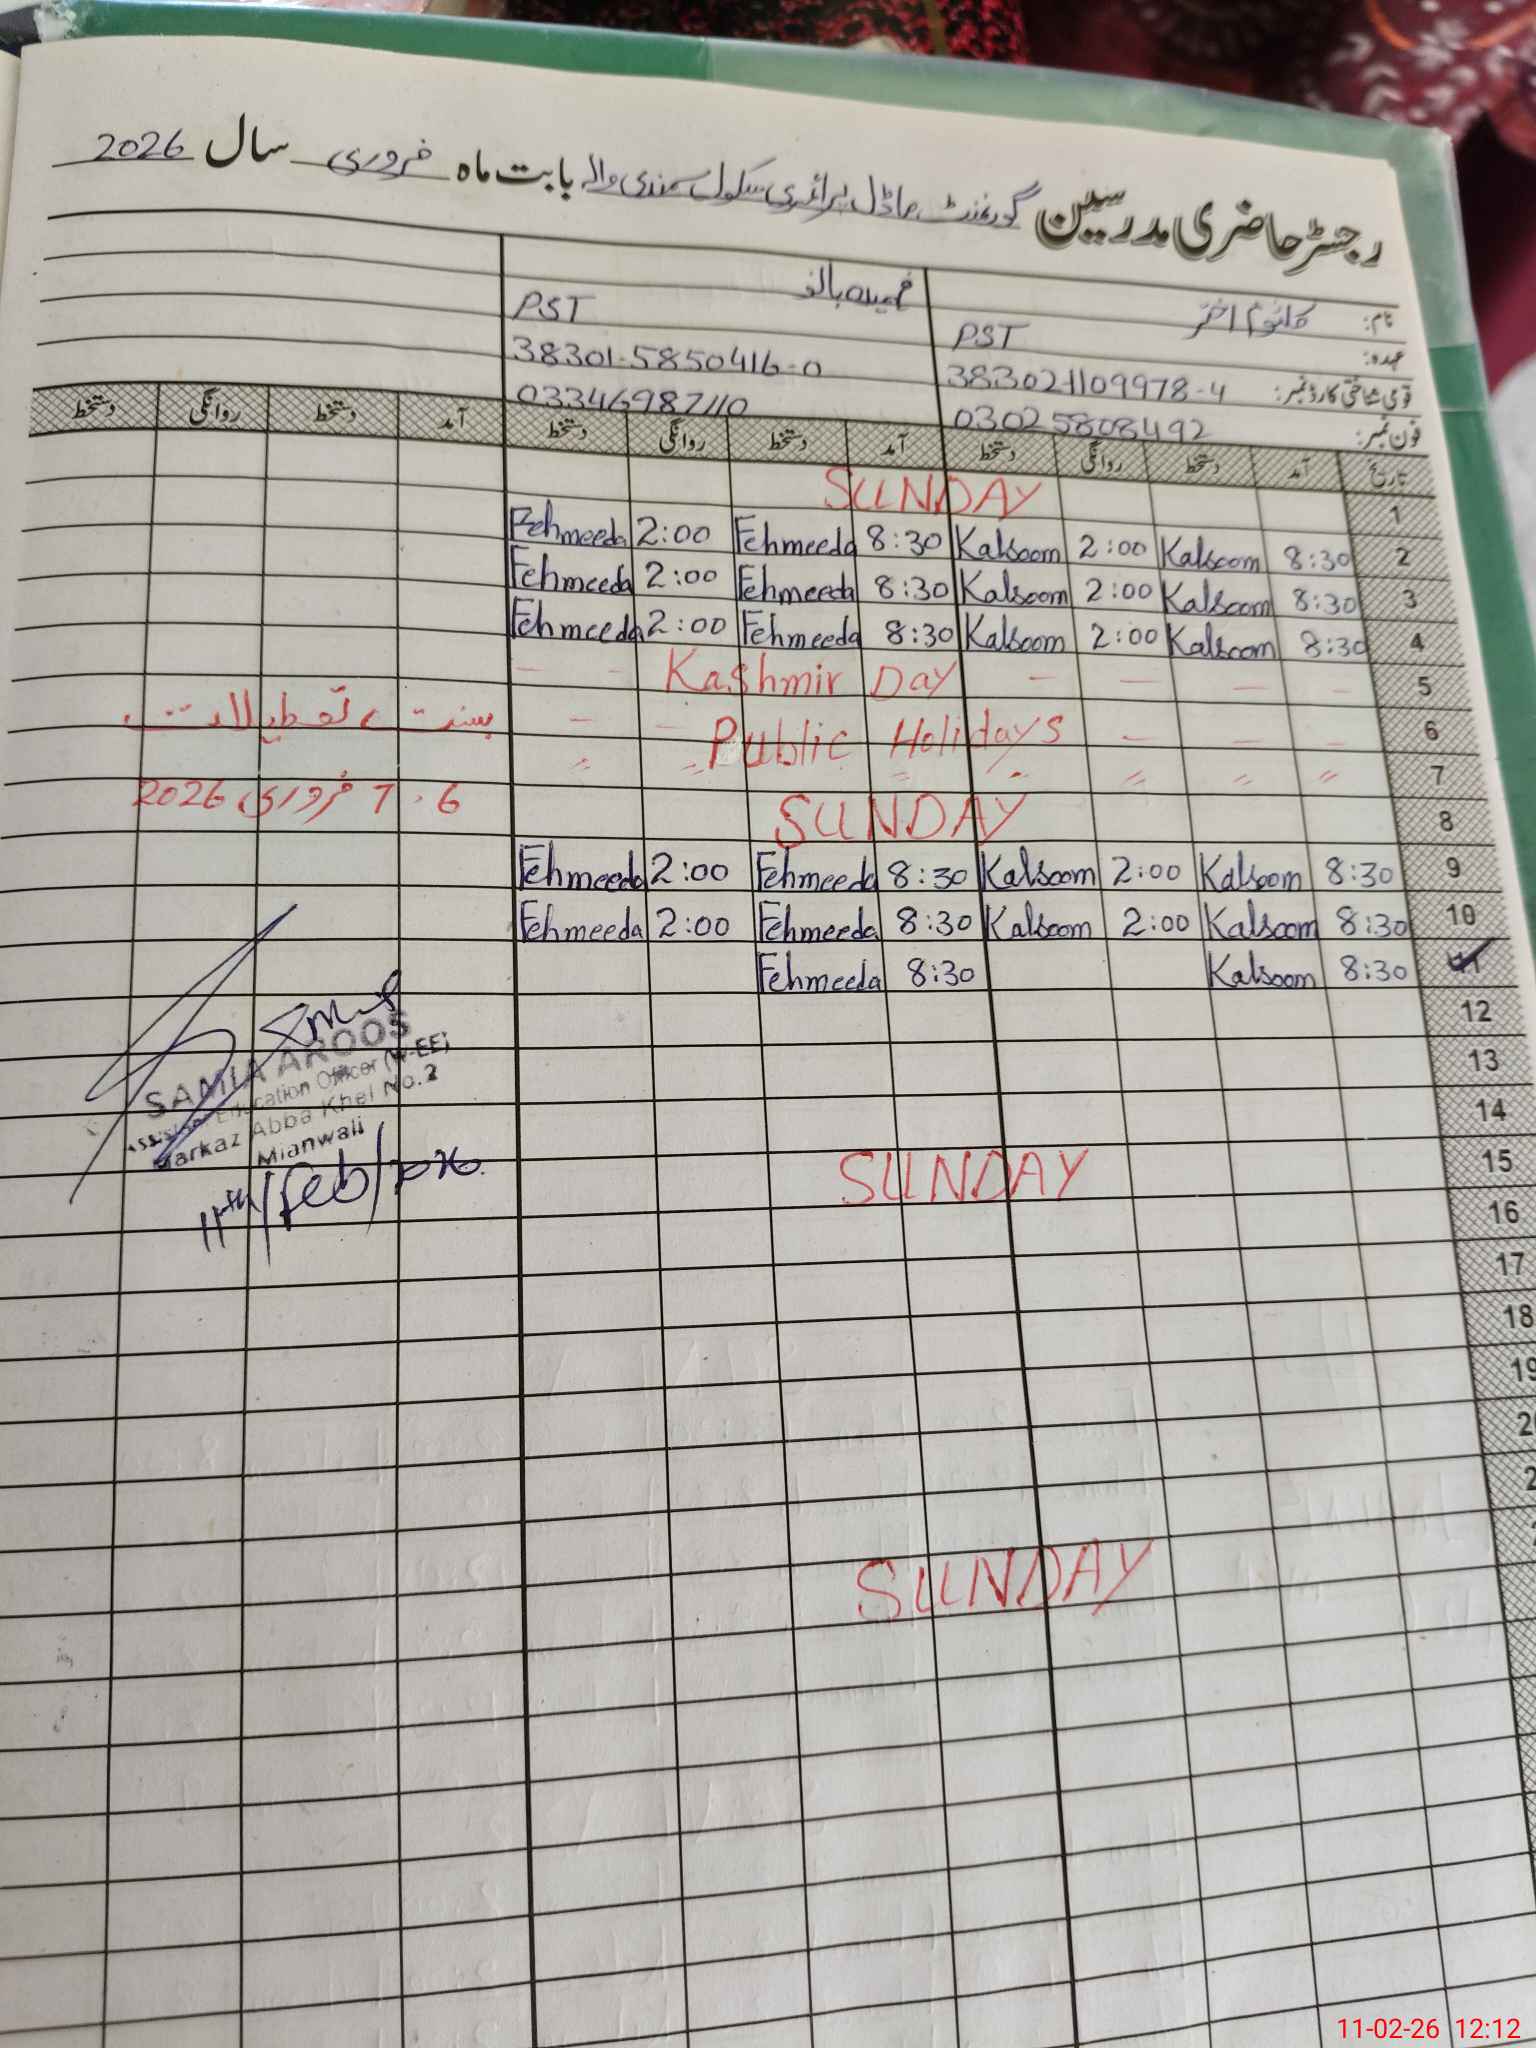 رجسٹر حاضری مدرسین گورنمنٹ ماڈل پرائمری سکول سمندی والہ بابت ماہ فروری سال 2026
نام: کلثوم اختر فہمیدہ بانو
عہدہ: PST PST
قومی شناختی کارڈ نمبر: 383021109978-4 38301-5850416-0
فون نمبر: 03025808492 03346987110
تاریخ آمد دستخط روانگی دستخط آمد دستخط روانگی دستخط آمد دستخط روانگی دستخط
1 SUNDAY
2 8:30 Kalsoom 2:00 Kalsoom 8:30 Fehmeeda 2:00 Fehmeeda
3 8:30 Kalsoom 2:00 Kalsoom 8:30 Fehmeeda 2:00 Fehmeeda
4 8:30 Kalsoom 2:00 Kalsoom 8:30 Fehmeeda 2:00 Fehmeeda
5 - - - Kashmir Day - -
6 - - - Public Holidays - - بسنت تعطیلات
7 〃 〃 〃 〃 〃 〃 〃 6 . 7 فروری 2026
8 SUNDAY
9 8:30 Kalsoom 2:00 Kalsoom 8:30 Fehmeeda 2:00 Fehmeeda
10 8:30 Kalsoom 2:00 Kalsoom 8:30 Fehmeeda 2:00 Fehmeeda
11 8:30 Kalsoom 8:30 Fehmeeda
12
13
14
15 SUNDAY
16
17
18
19
SUNDAY
SAMIA AROOS
Assistant Education Officer (W-EE)
Markaz Abba Khel No.2
Mianwali
11th/Feb/2026.
11-02-26 12:12